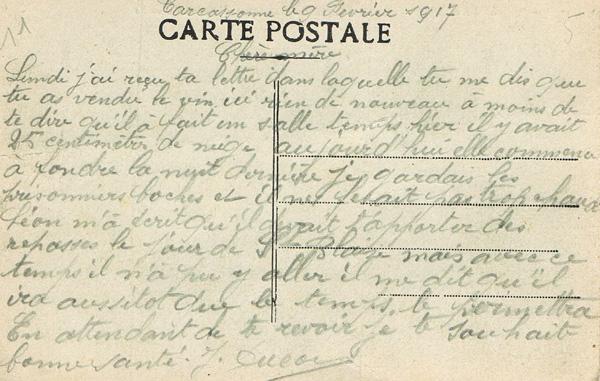 Carcassonne le 9 Fevrier 1917
CARTE POSTALE
Chère mère
Lundi j'ai reçu ta lettre dans laquelle tu me dis que
tu as vendu le vin, ici rien de nouveau à moins de
te dire qu'il à fait un salle temps, hier il y avait
25 centimètres de neige aujourd'hui elle commence
à fondre la nuit dernière je gardais les
prisonniers boches et il ne fesait pas trop chaud
Léon m'a écrit qu'il devait t'apporter des
repasses le jour de St Blaise mais avec ce
temps il n'a pu y aller il me dit qu'il
ira aussitot que le temps le permettra
En attendant de te revoir je te souhaite
bonne santé. J.